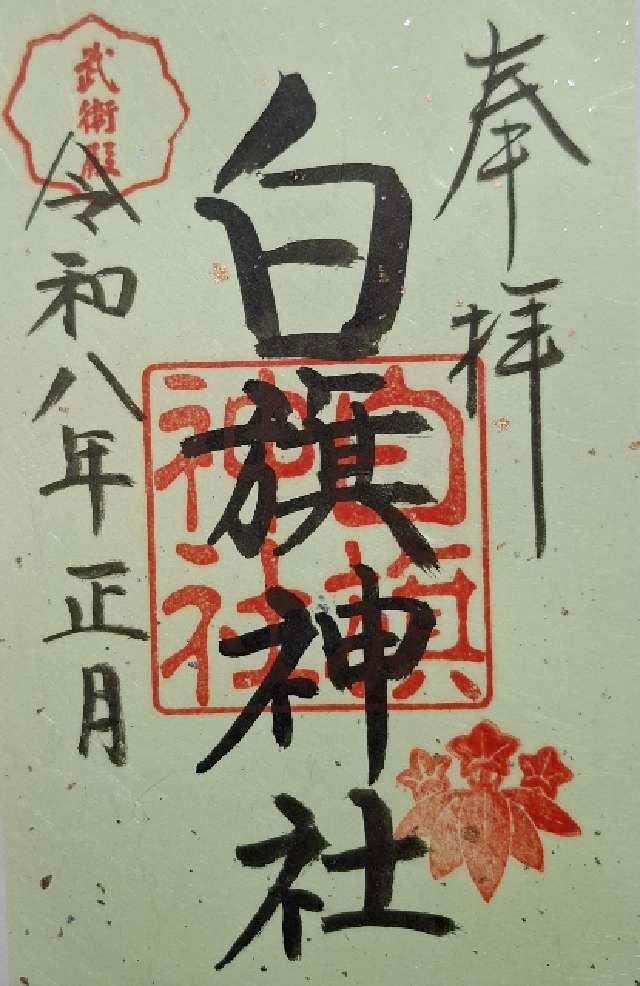 奉拝
白旗神社
白旗神社
令和八年正月
武衛殿